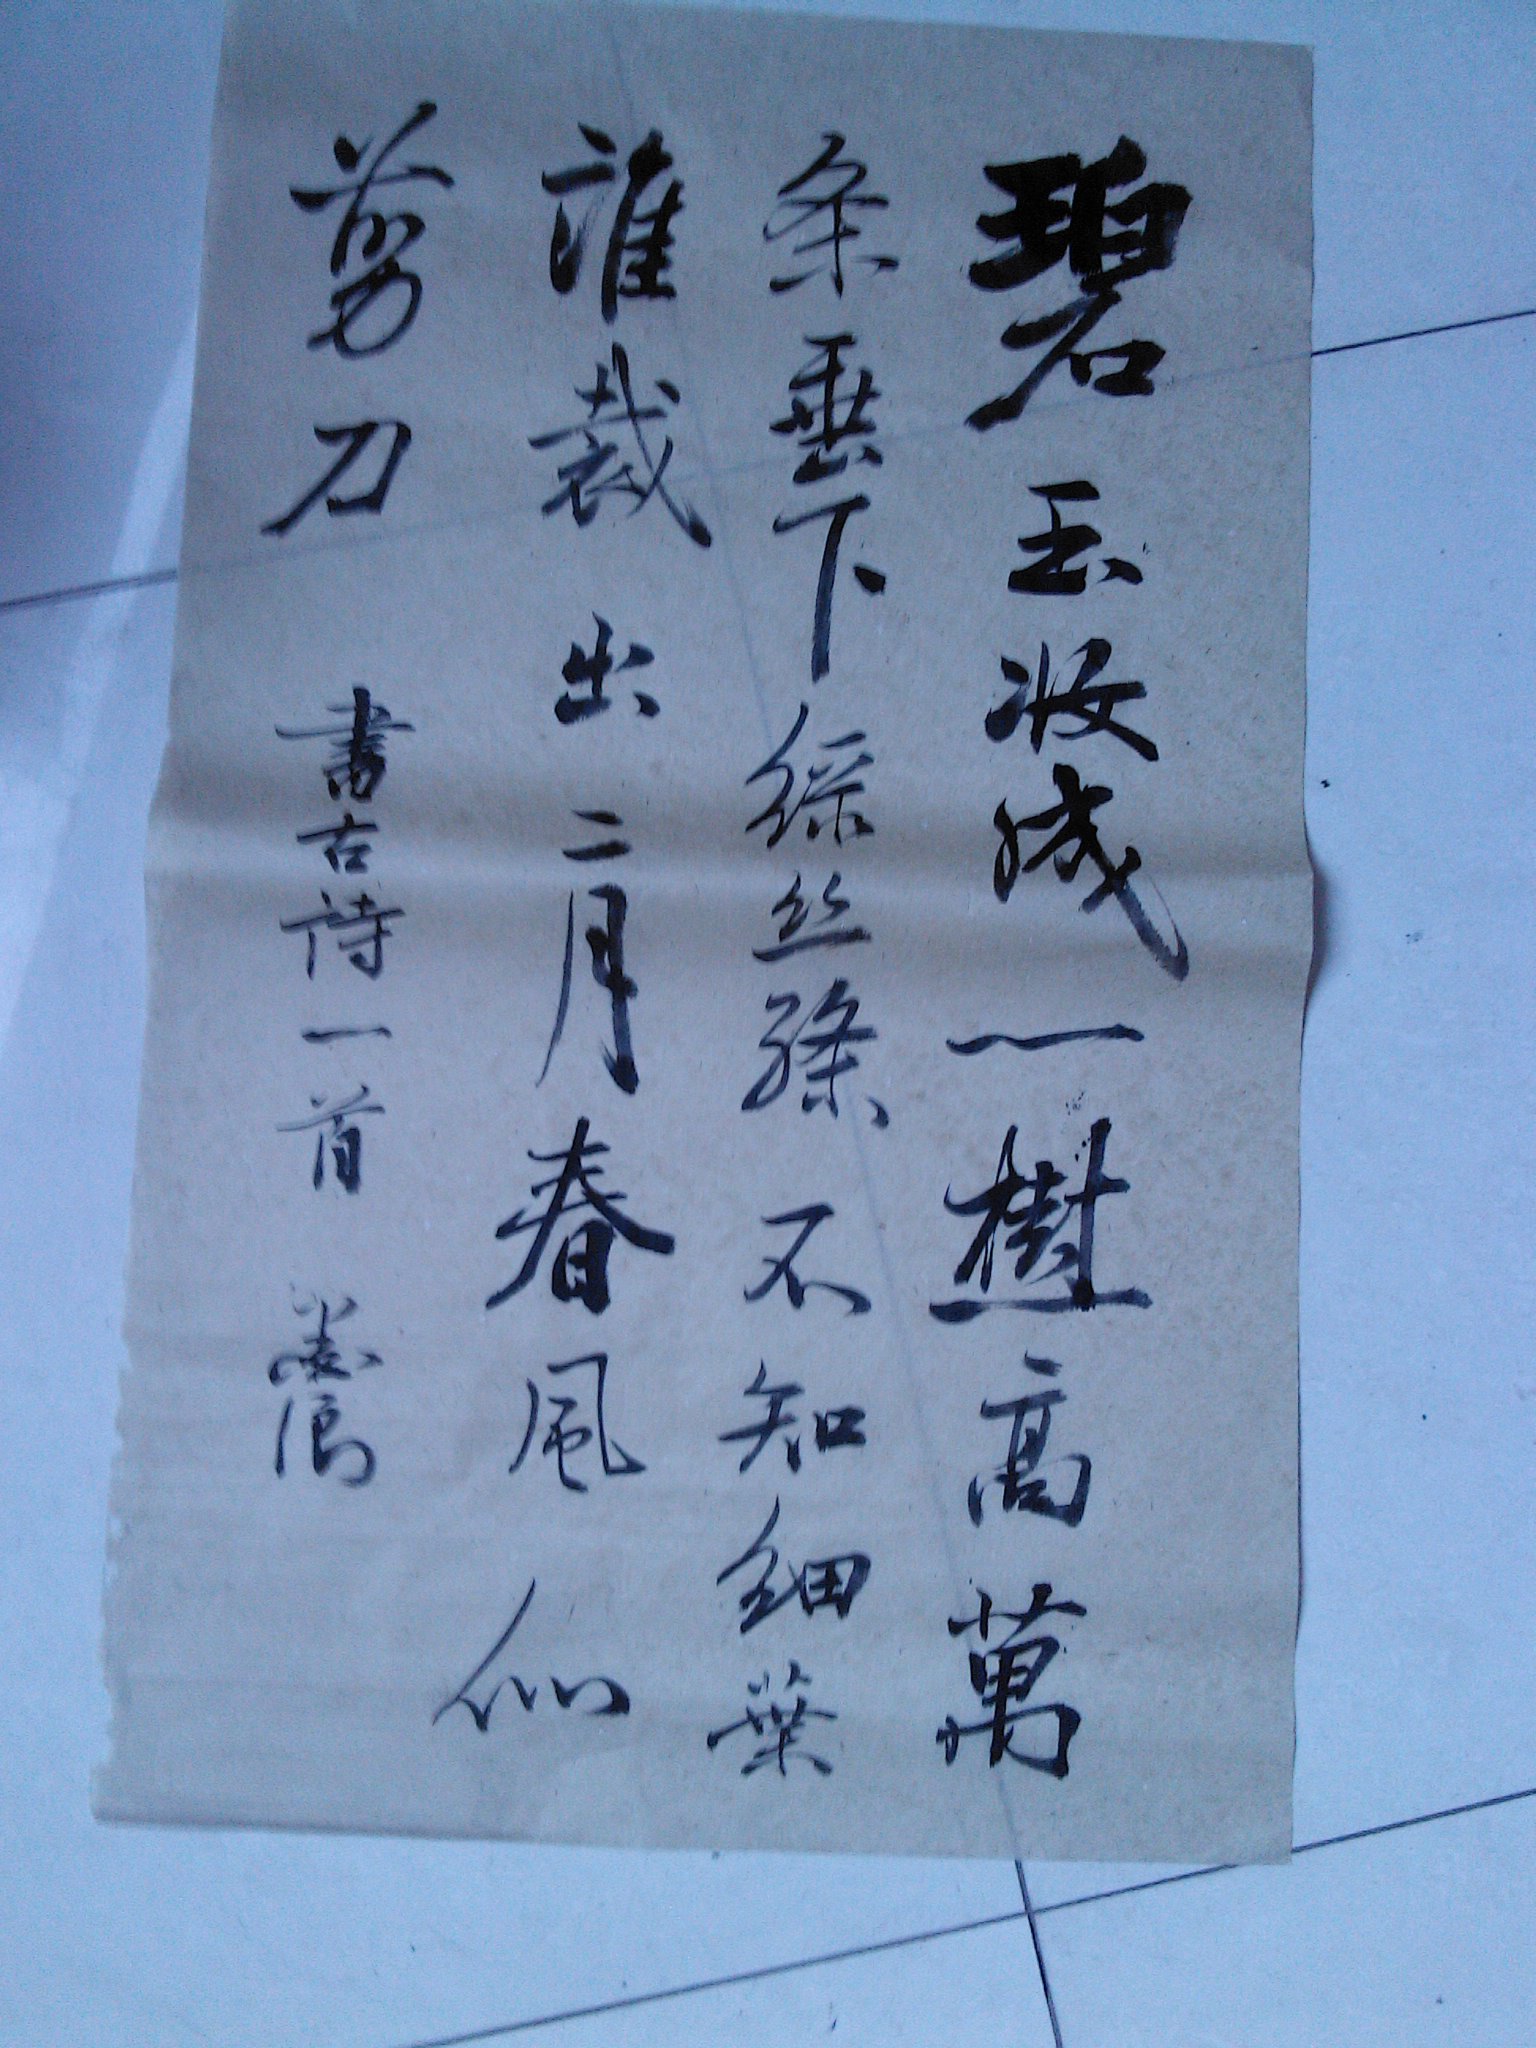 碧玉妝成一樹高萬
条垂下綵丝絛不知細葉
誰裁出二月春風似
剪刀
書古詩一首